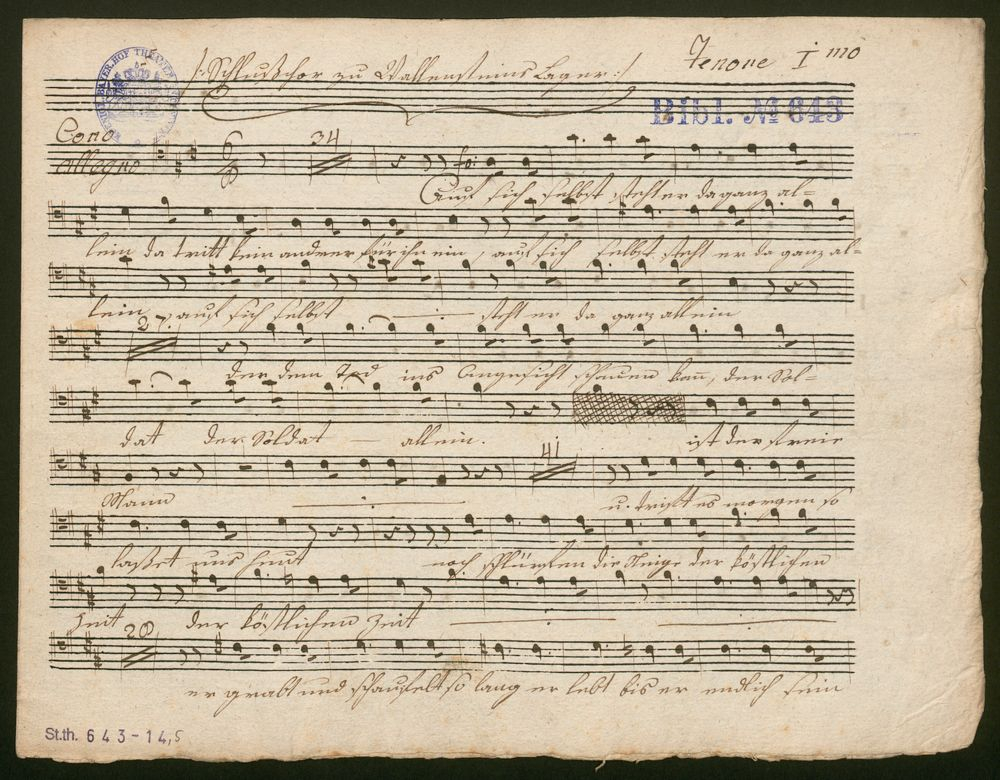 /: Schlußchor zu Wallensteins Lager :/
Tenore I mo
Bibl. № 643
Coro
Allegro
6
8
34
fo:
Auf sich selbst steht er da ganz al=
lein da tritt kein anderer für ihn ein, auf sich selbst steht er da ganz al=
lein, auf sich selbst steht er da ganz allein
2
der dem Tod ins Angesicht schauen kan, der Sol=
dat der Soldat — allein. ist der freie
41
Mann u. trifft es morgen so
laßet uns heut noch schlürfen die Neige der köstlichen
Zeit der köstlichen Zeit
20
er grabt und schaufelt so lang er lebt bis er endlich sein
St.th. 643-14,5